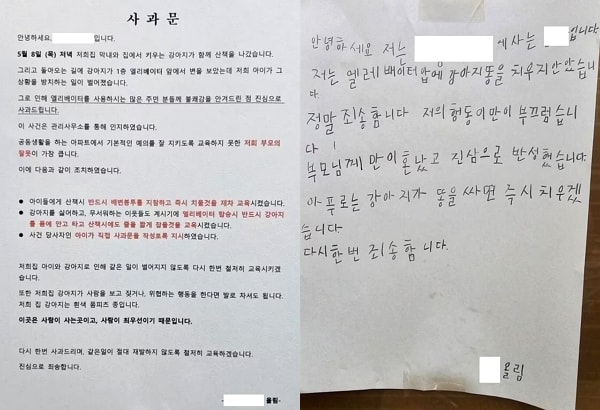 사 과 문
안녕하세요, 입니다.
5월 8일 (목) 저녁 저희집 막내와 집에서 키우는 강아지가 함께 산책을 나갔습니다.
그리고 돌아오는 길에 강아지가 1층 엘리베이터 앞에서 변을 보았는데 저희 아이가 그
상황을 방치하는 일이 벌어졌습니다.
그로 인해 엘리베이터를 사용하시는 많은 주민 분들께 불쾌감을 안겨드린 점 진심으로
사과드립니다.
이 사건은 관리사무소를 통해 인지하였습니다.
공동생활을 하는 아파트에서 기본적인 예의를 잘 지키도록 교육하지 못한 저희 부모의
잘못이 가장 큽니다.
이에 다음과 같이 조치하였습니다.
● 아이들에게 산책시 반드시 배변봉투를 지참하고 즉시 치울것을 재차 교육시켰습니다.
● 강아지를 싫어하고, 무서워하는 이웃들도 계시기에 엘리베이터 탑승시 반드시 강아지
를 품에 안고 타고 산책시에도 줄을 짧게 잡을것을 교육시켰습니다.
● 사건 당사자인 아이가 직접 사과문을 작성토록 지시하였습니다.
저희집 아이와 강아지로 인해 같은 일이 벌어지지 않도록 다시 한번 철저히 교육시키겠
습니다.
또한 저희집 강아지가 사람을 보고 짖거나, 위협하는 행동을 한다면 발로 차셔도 됩니다.
저희 집 강아지는 흰색 폼피츠 종입니다.
이곳은 사람이 사는곳이고, 사람이 최우선이기 때문입니다.
다시 한번 사과드리며, 같은일이 절대 재발하지 않도록 철저히 교육하겠습니다.
진심으로 죄송합니다.
- 올림-
안녕하세요 저는 에사는 입니다
저는 엘레베이터 앞에 강아지똥을 치우지안았습니
다
정말 죄송함니다 저의 행동이 만이 부끄럽습니
다
부모님께 만이 혼났고 진심으로 반성했습니다.
아푸로는 강아지가 똥을 싸면 즉시 치우겠
습니다.
다시한번 죄송함니다.
올림